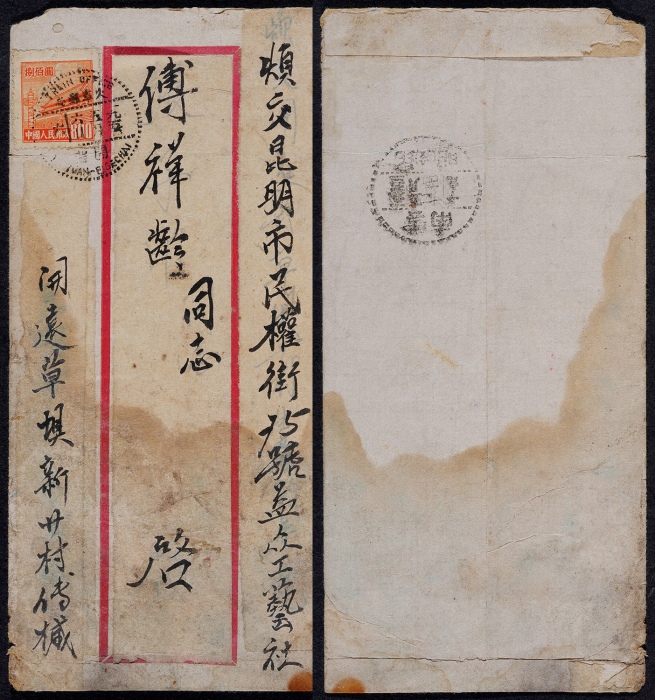 煩交昆明市民權街75號益众工藝社
傅祥齡
同志
啓
開遠草壩新廿村傅椷
捌佰圓
中國人民郵政
800
雲南